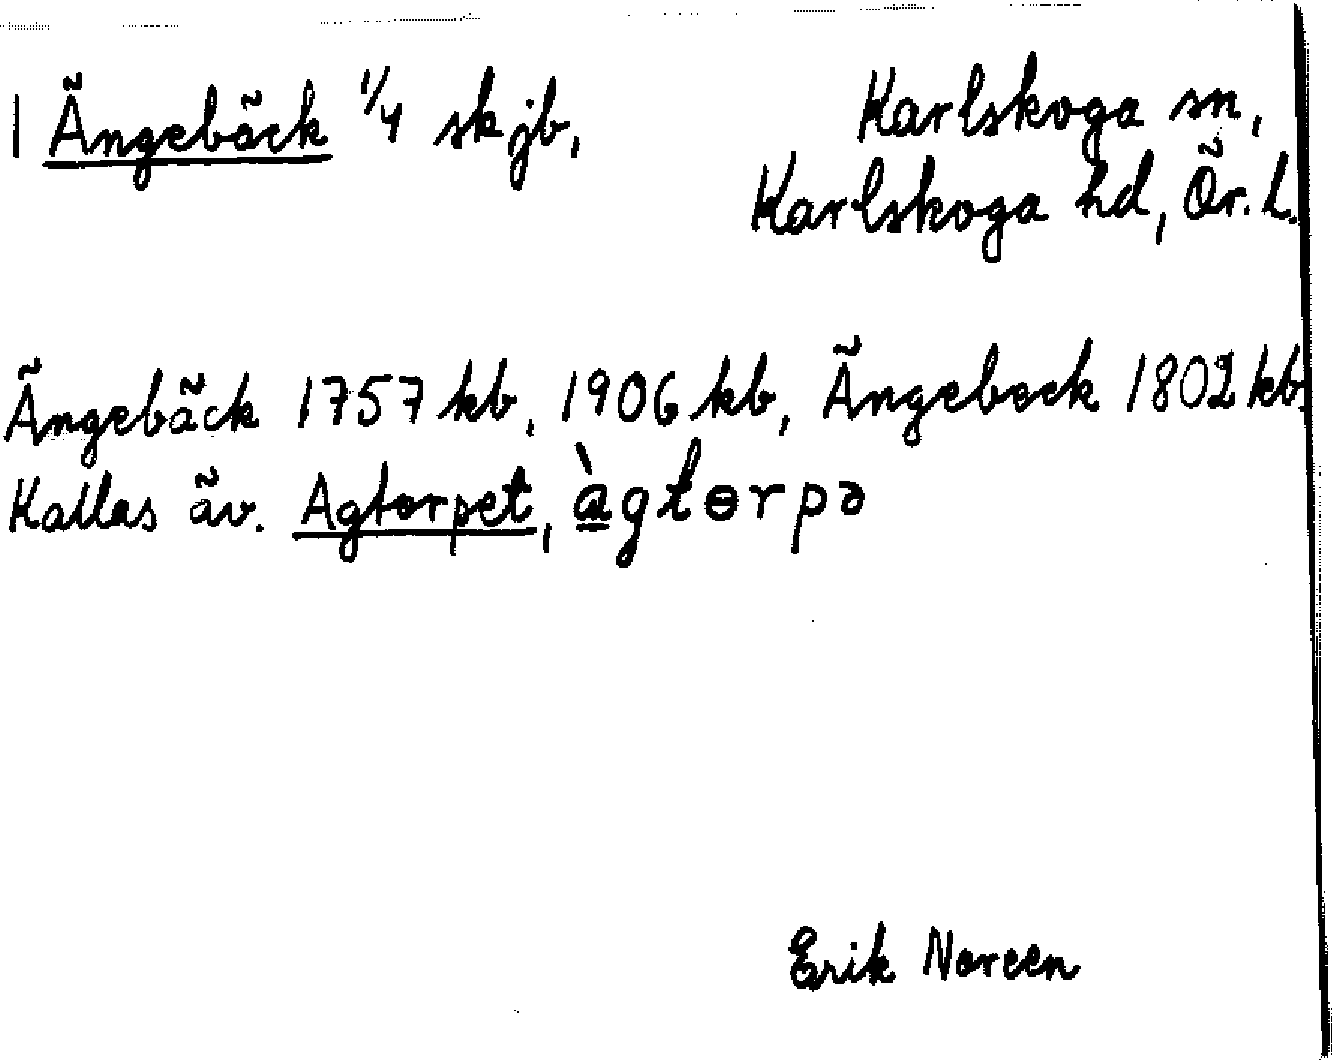 1 Ängebäck 1/4 skjb, Karlskoga sn,
Karlskoga hd, Ör. L.
Ängebäck 1757 kb, 1906 kb, Ängebeck 1802 kb.
Kallas äv. Agtorpet, àgtɵrpə
Erik Noreen